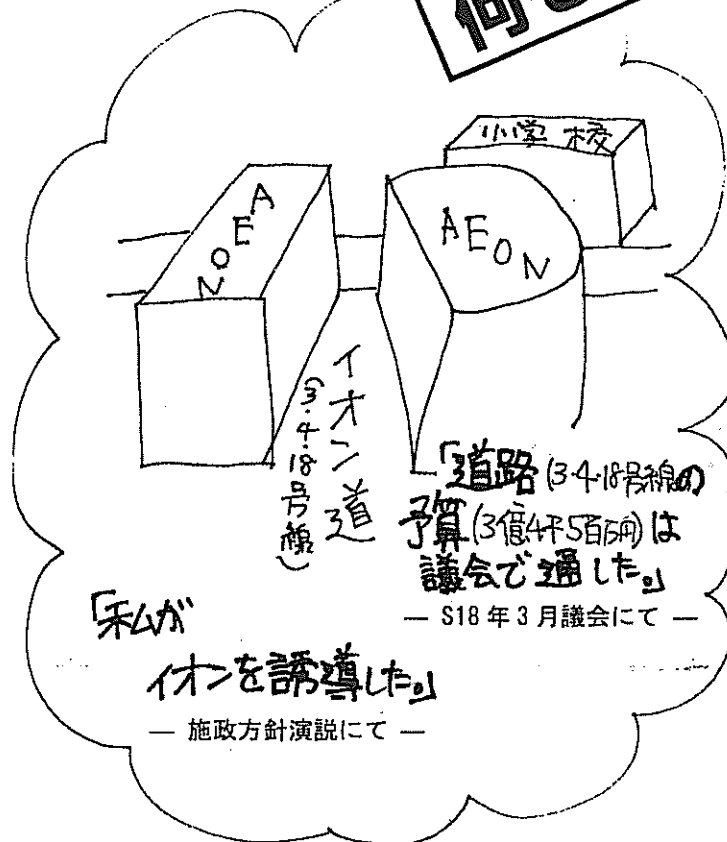 何
小学校
AEON
AEON
イオン道
(3・4・18号線)
「道路(3・4・18号線の
予算(3億4千5百万円)は
議会で通した。」
― S18年3月議会にて ―
「私が
イオンを誘導した。」
― 施政方針演説にて ―